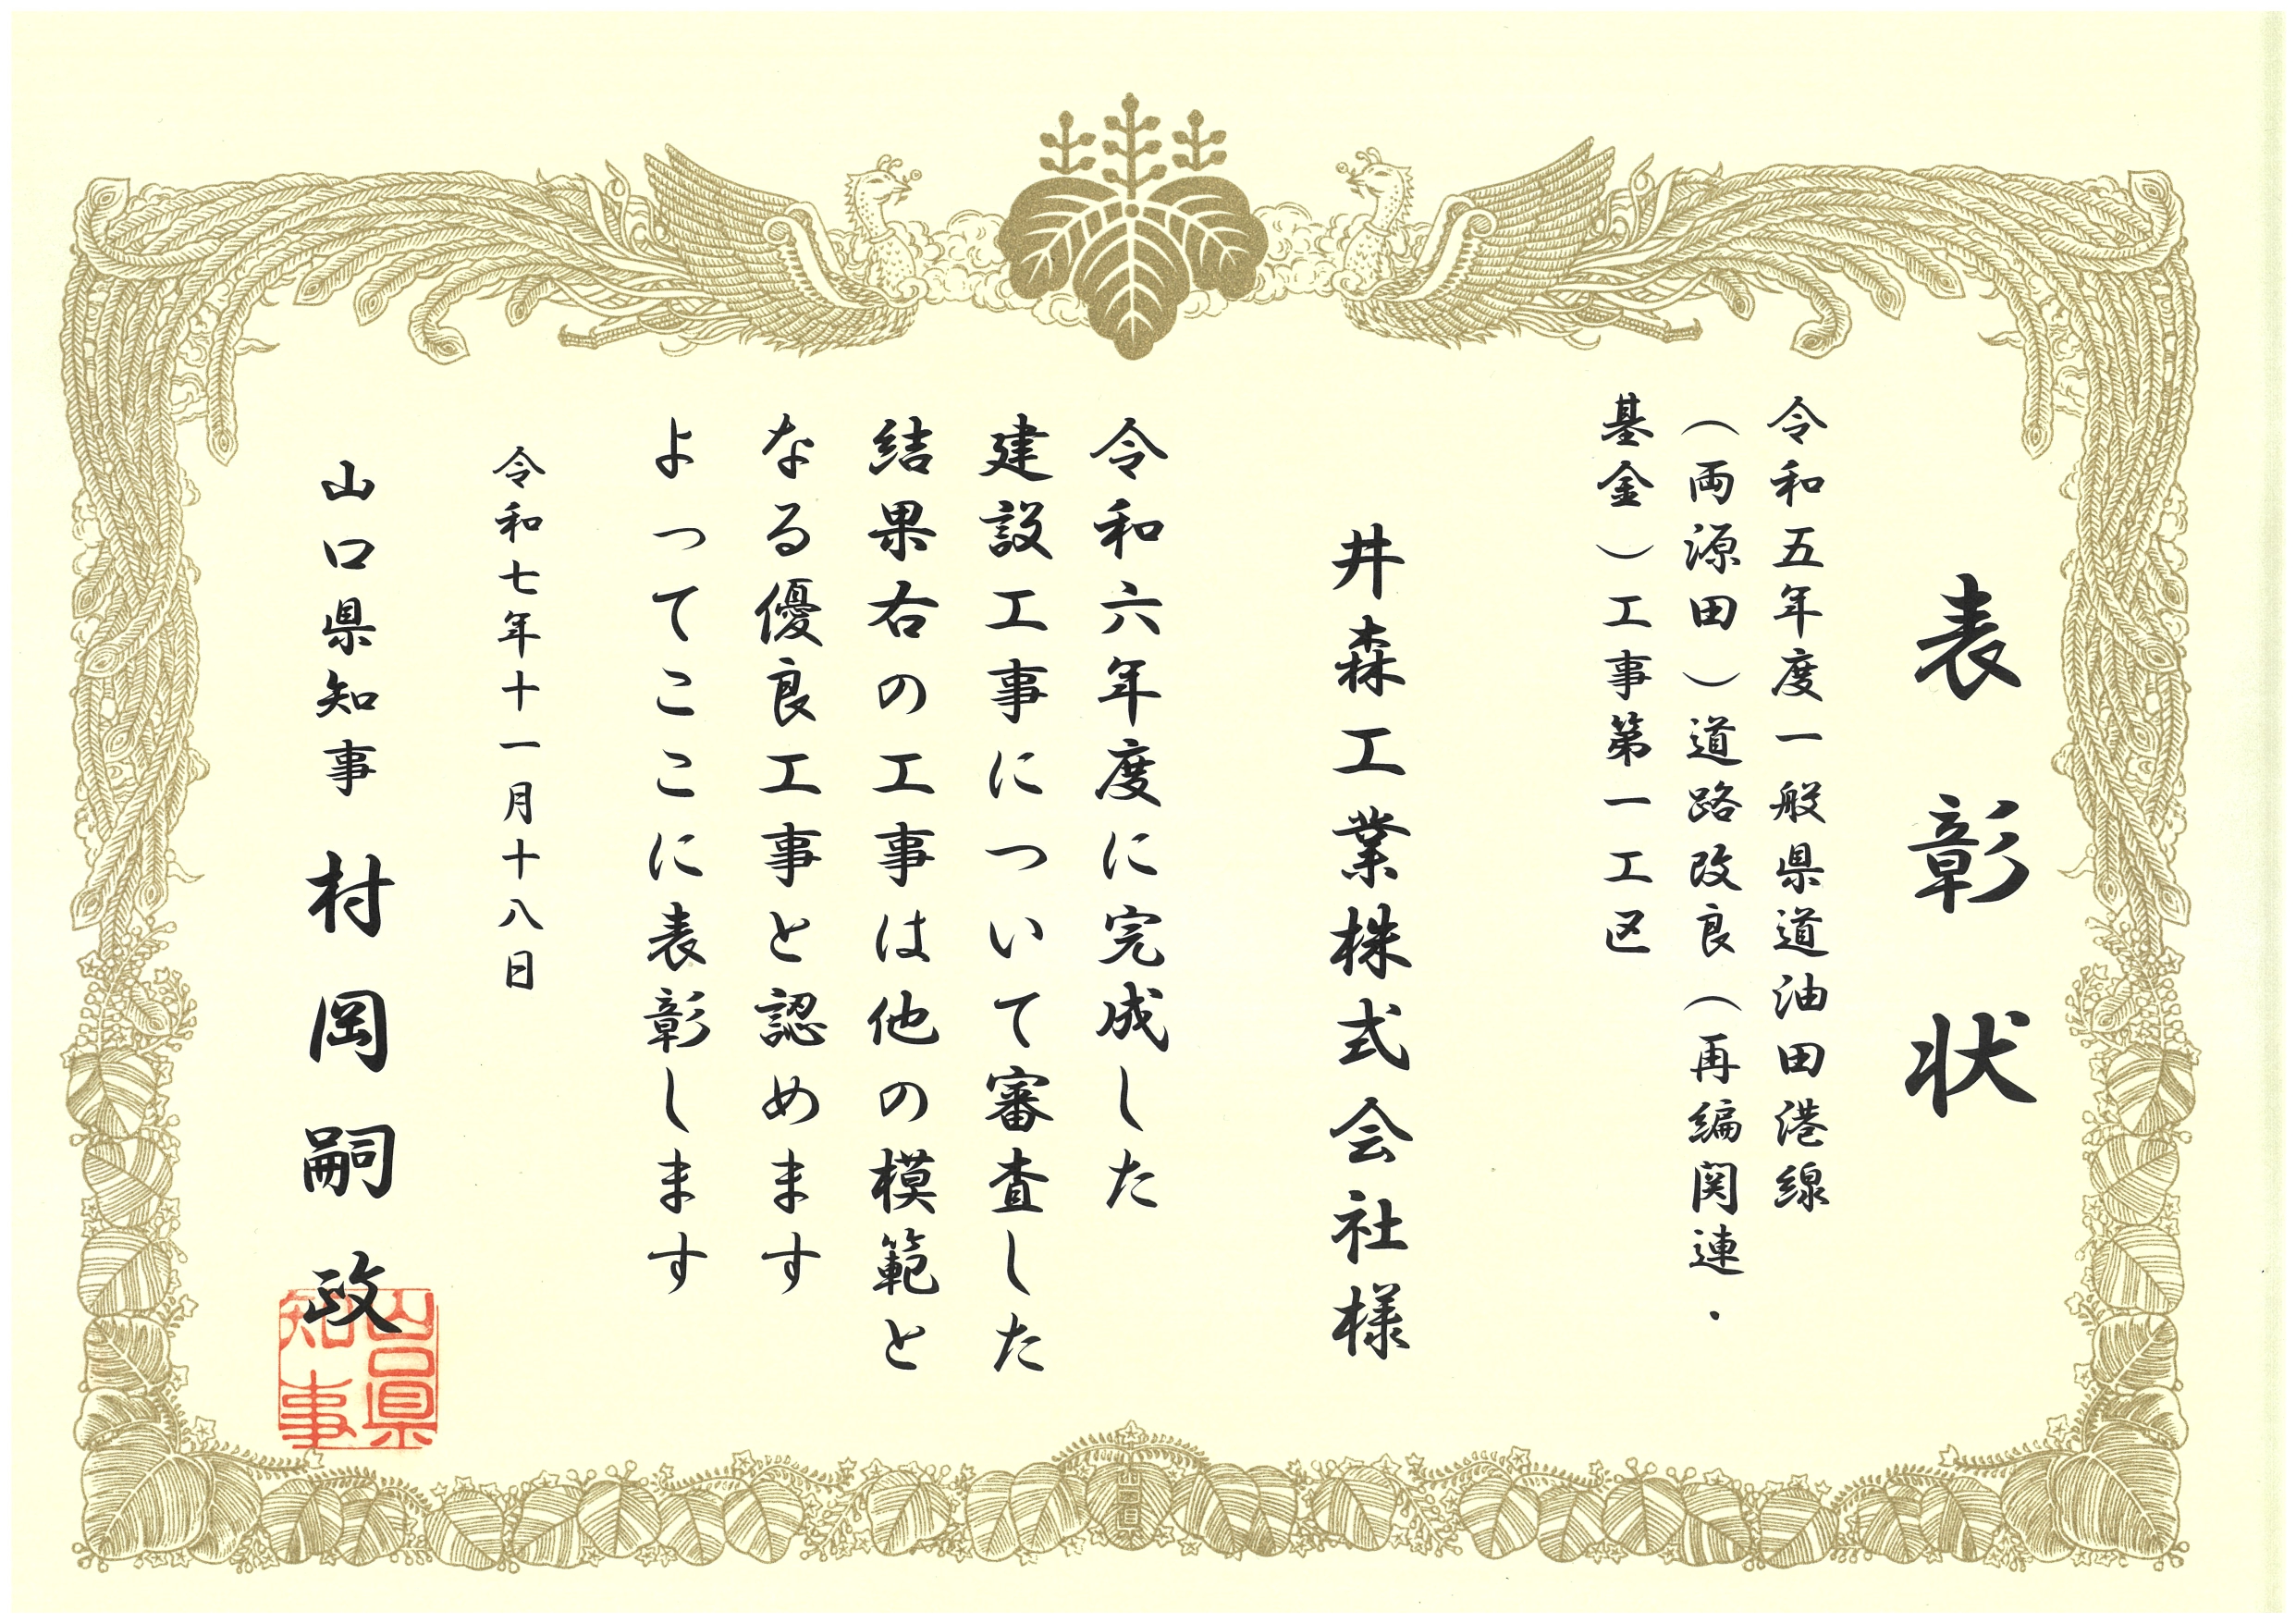 表彰状
令和五年度一般県道油田港線
（両源田）道路改良（再編関連・
基金）工事第一工区
井森工業株式会社様
令和六年度に完成した
建設工事について審査した
結果右の工事は他の模範と
なる優良工事と認めます
よってここに表彰します
令和七年十一月十八日
山口県知事 村岡嗣政
山口縣
知事
山口県